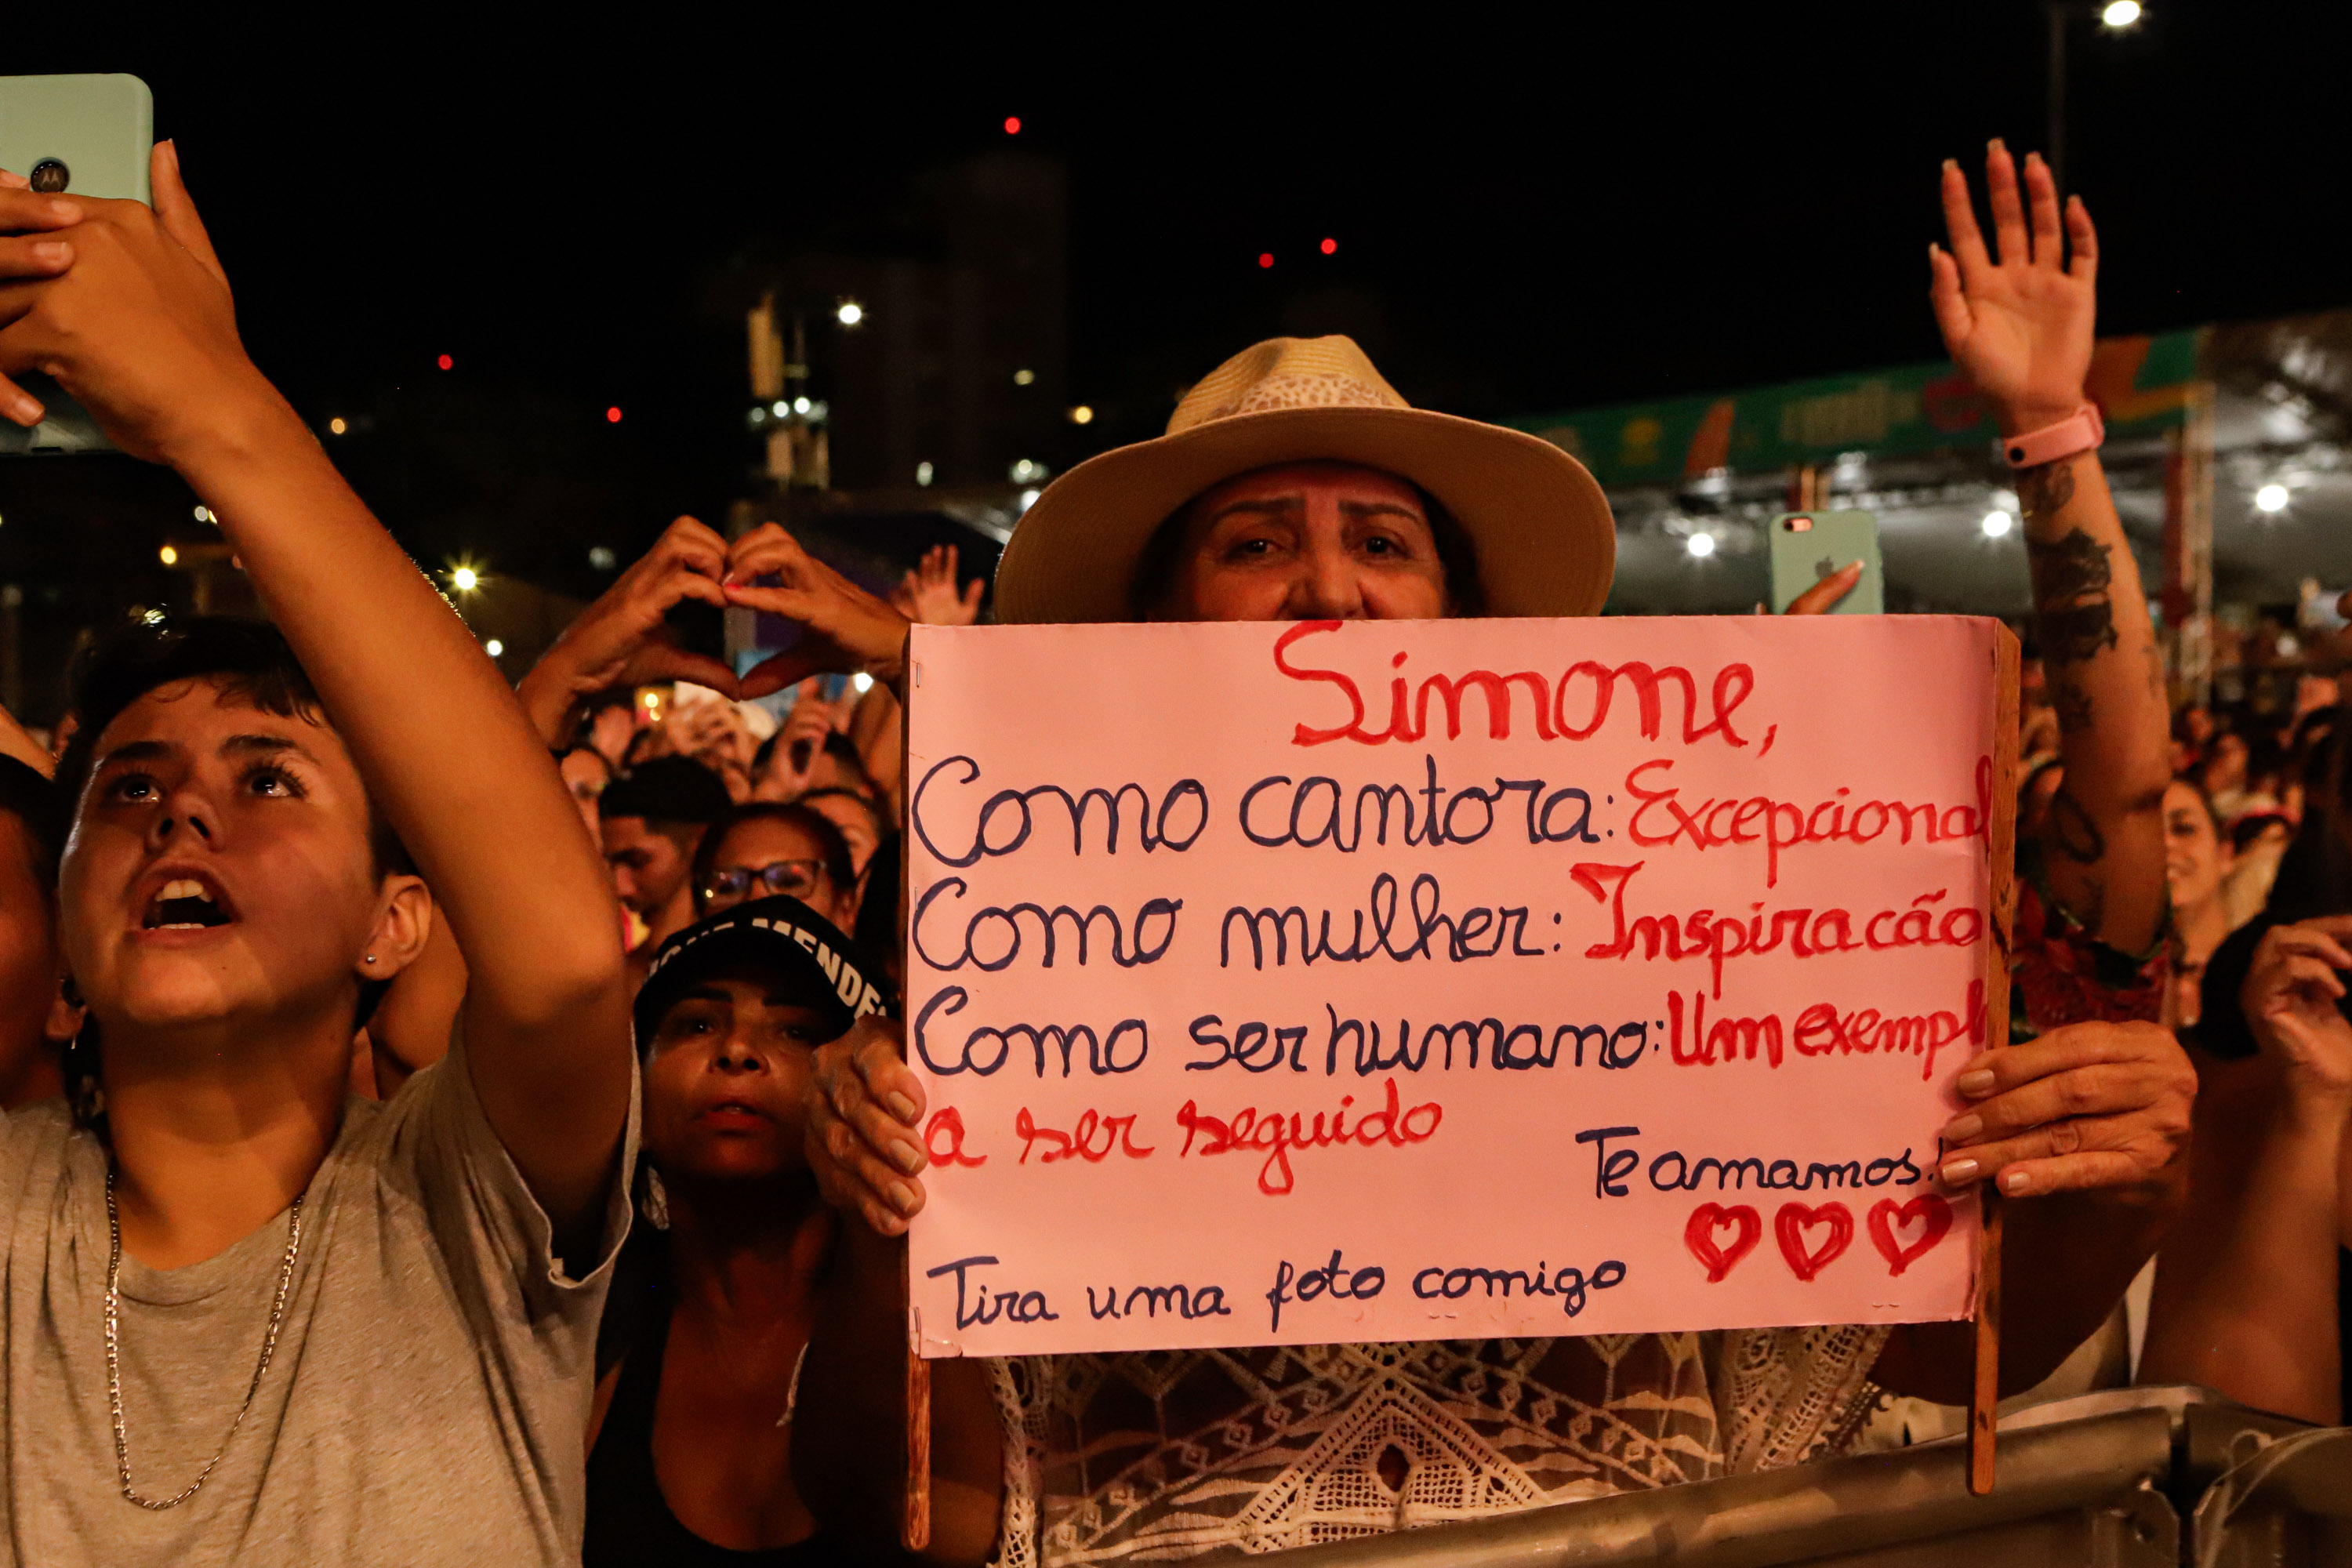 MENDES
Simone,
Como cantora: Excepcional
Como mulher: Inspiracão
Como ser humano: Um exempl
a ser seguido
Te amamos!
Tira uma foto comigo